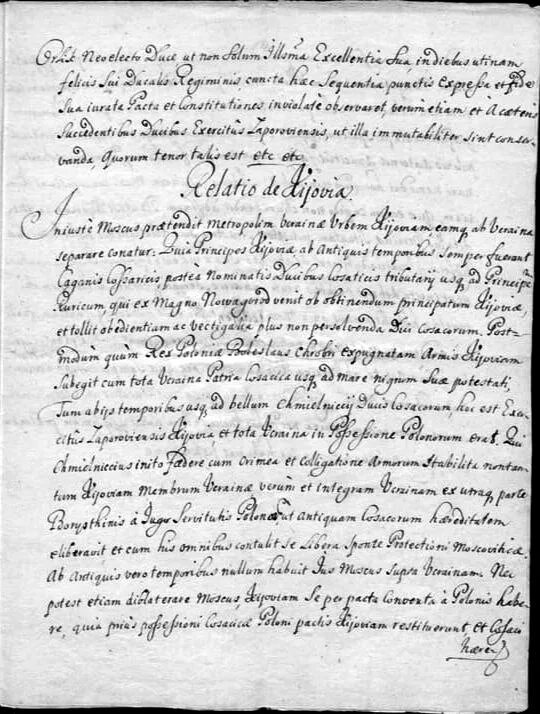 Neoelecto Duce ut non Solum Illsma Excellentia Sua in diebus utinam
felicis Sui Ducalis Regiminis, cuncta hæc Sequentia punctis expressa et
Sua iurata Pacta et Constitutiones inviolate observaret, verum etiam et
Succedentibus Ducibus Exercitûs Zaporoviensis, ut illa immutabiliter sint conser-
vanda, Quorum tenor talis est etc etc
Relatio de Kijovia.
Iniuste Moscus prætendit Metropolim Ucrainæ Urbem Kijoviam, eamq ab Ucraina
separare conatur: Quia Principes Kijoviæ ab Antiquis temporibus Semper fuerunt
Caganis Cossaricis postea Nominatis Ducibus Cosaticis tributarij usq ad Principem
Ruricum, qui ex Magno Nowagorod venit ob obtinendum principatum Kijoviæ,
et tollit obedientiam ac vectigalia plus non persolvenda Duci Cosacorum. Post-
modum quum Rex Poloniæ Boleslaus Chrobri expugnatam Armis Kijoviam
Subegit cum tota Ucraina Patria Cosacica usq ad mare nigrum Suæ potestati,
Tum ab ijs temporibus usq ad bellum Chmielniccij Ducis Cosacorum, hoc est Exer-
citûs Zaporoviensis Kijovia et tota Ucraina in Possessione Polonorum erat. Qui
Chmielniccius inito fædere cum Crimea et Colligatione Armorum Stabilita non tan-
tum Kijoviam Membrum Ucrainæ verum et integram Ucrainam ex utraq parte
Borysthinis à Jugo Servitutis Polonæ ut Antiquam Cosacorum hæreditatem
eliberavit et cum his omnibus contulit se Libera Sponte Protectioni Moscoviticæ.
Ab Antiquis vero temporibus nullum habuit Jus Moscus Supra Ucrainam. Nec
potest etiam Moscus, Kijoviam Se per pacta Conventa à Polonis habe-
re, quia prius possessioni Cosaticæ Poloni pactis Kijoviam restituerunt, et Cosaci